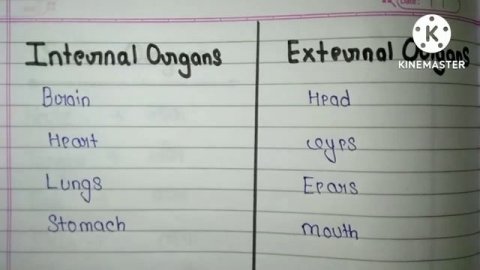 Date :
Internal Organs External Organs
K
KINEMASTER
Brain Head
Heart eyes
Lungs Ears
Stomach Mouth